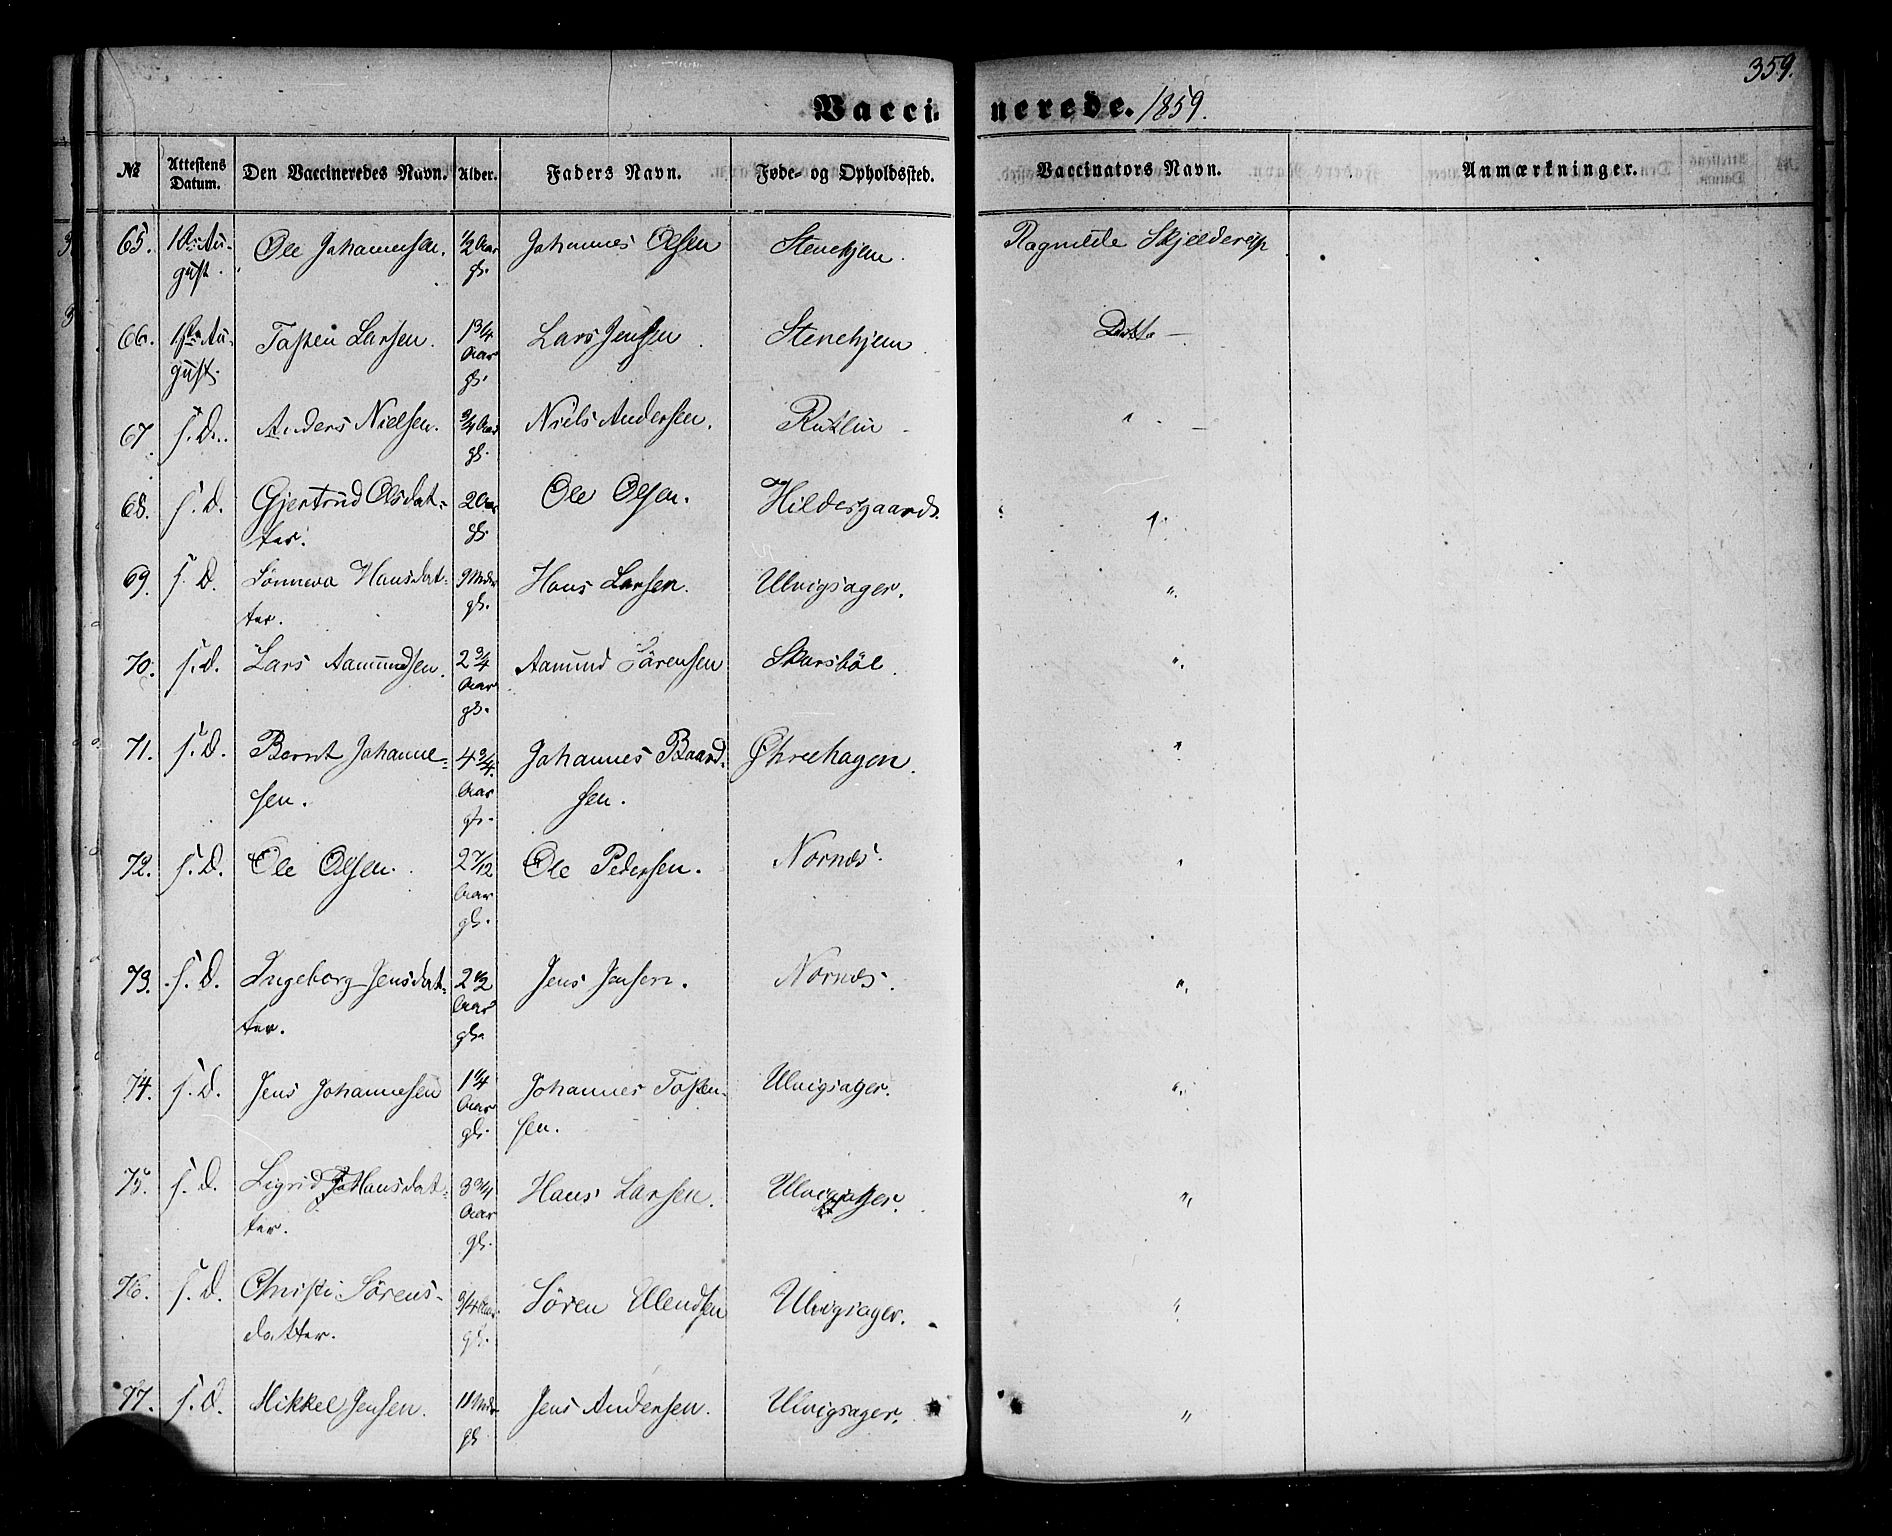 359.
Vaccinerede. 1859.
№ Attestens Datum. Den Vaccineredes Navn. Alder. Faders Navn. Føde- og Opholdssted. Vaccinators Navn. Anmærkninger.
65. August. Ole Johannesen. 1/2 Aar gl. Johannes Olsen Stenehjem. Ragnilde Skjelderup
66. August. Tosten Larsen. 1 3/4 Aar gl. Lars Jensen Stenehjem. Ditto —
67. s. D. Anders Nielsen. 3/4 Aar gl. Niels Andersen. Rutlin "
68. s. D. Gjertrud Olsdatter. 2 Aar gl. Ole Olsen. Hildesgaard. "
69. s. D. Sønneva Hansdatter. 9 Mdr gl. Hans Larsen. Ulvigsager. "
70. s. D. Lars Aamundsen. 2 3/4 Aar gl. Aamund Sørensen Skarsbøl. "
71. s. D. Bernt Johannesen. 4 3/4 Aar gl. Johannes Baardsen. Øhreehagen. "
72. s. D. Ole Olsen. 2 7/12 Aar gl. Ole Pedersen. Nornæs. "
73. s. D. Ingeborg Jensdatter. 2 1/2 Aar gl. Jens Jensen. Nornæs. "
74. s. D. Jens Johannesen 1 1/4 Aar gl. Johannes Tostensen. Ulvigsager. "
75. s. D. Sigrid Hansdatter. 3 3/4 Aar gl. Hans Larsen. Ulvigsager. "
76. s. D. Christi Sørensdatter. 3/4 Aar gl. Søren Ellendsen Ulvigsager. "
77. s. D. Mikkel Jensen. 11 Mdr gl. Jens Andersen. Ulvigsager. "